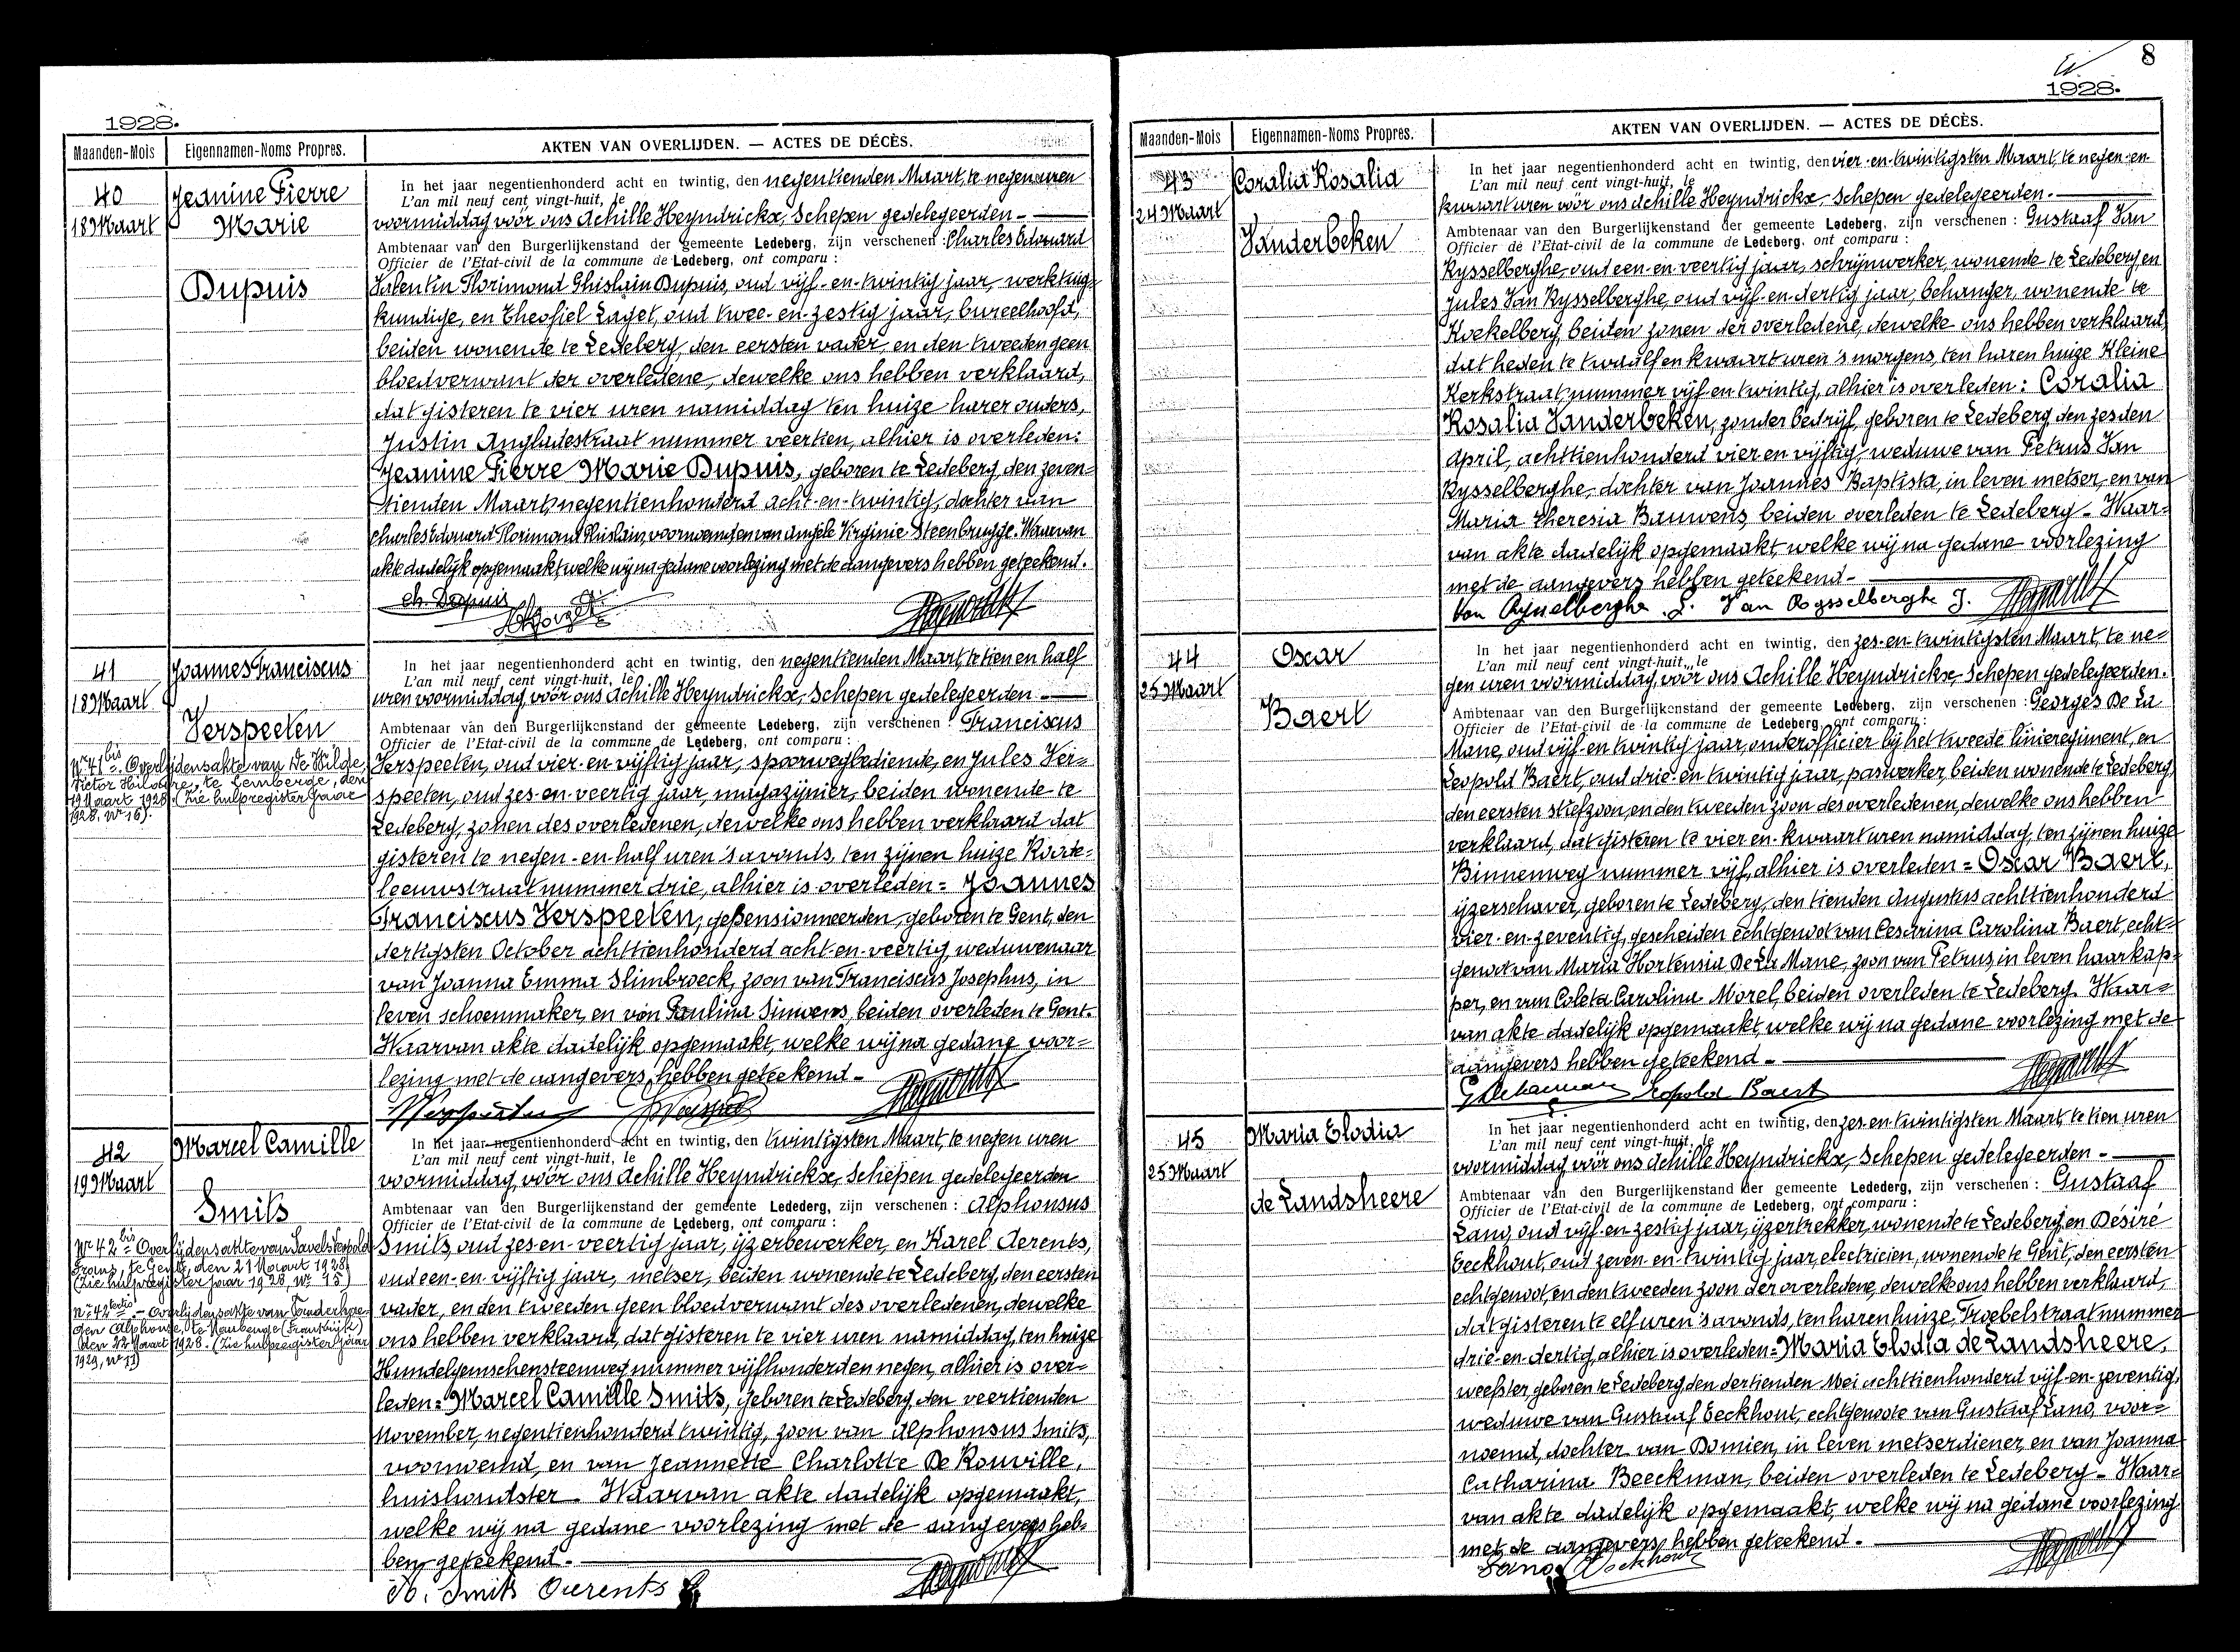 1928.
Maanden-Mois
Eigennamen-Noms Propres.
AKTEN VAN OVERLIJDEN. — ACTES DE DÉCÈS.
40
18 Maart
Jeanine Pierre
Marie
Dupuis
In het jaar negentienhonderd acht en twintig, den negentienden Maart, te negen uren
L'an mil neuf cent vingt-huit, le
voormiddag vóór ons Achille Heyndrickx, Schepen gedelegeerden -
Ambtenaar van den Burgerlijkenstand der gemeente Ledeberg, zijn verschenen : Charles Edouard
Officier de l'Etat-civil de la commune de Ledeberg, ont comparu :
Valentin Florimond Ghislain Dupuis, oud vijf-en-twintig jaar, werktuig=
kundige, en Theofiel Laget, oud twee-en-zestig jaar, bureelhoofd,
beiden wonende te Ledeberg, den eersten vader, en den tweeden geen
bloedverwant der overledene, dewelke ons hebben verklaard,
dat gisteren te vier uren namiddag ten huize harer ouders,
Justin Angladestraat nummer veertien, alhier is overleden:
Jeanine Pierre Marie Dupuis, geboren te Ledeberg, den zeven=
tienden Maart, negentienhonderd acht-en-twintig, dochter van
Charles Edouard Florimond Ghislain, voornoemd, en van Angele Virginie Steenbrugge. Waarvan
akte dadelijk opgemaakt, welke wij na gedane voorlezing met de aangevers hebben geteekend.
Ch. Dupuis
41
18 Maart
Joannes Franciscus
Verspeeten
Nr 41 bis = Overlijdensakte van De Wilde
Victor Hilonore, te Lemberge, den
19 Maart 1928 (Zie hulpregister jaar
1928, Nr 16).
In het jaar negentienhonderd acht en twintig, den negentienden Maart, te tien en half
L'an mil neuf cent vingt-huit, le
uren voormiddag, vóór ons Achille Heyndrickx, Schepen gedelegeerden -
Ambtenaar van den Burgerlijkenstand der gemeente Ledeberg, zijn verschenen : Franciscus
Officier de l'Etat-civil de la commune de Ledeberg, ont comparu :
Verspeeten, oud vier-en-vijftig jaar, spoorwegbediende, en Jules Ver=
speeten, oud zes-en-veertig jaar, magazijnier, beiden wonende te
Ledeberg, zonen des overledenen, dewelke ons hebben verklaard dat
gisteren te negen-en-half uren 's avonds, ten zijnen huize Roode=
leeuwstraat nummer drie, alhier is overleden = Joannes
Franciscus Verspeeten, gepensionneerden, geboren te Gent, den
dertigsten October achttienhonderd acht-en-veertig, weduwenaar
van Joanna Emma Slimbroeck, zoon van Franciscus Josephus, in
leven schoenmaker, en van Paulina Simoens, beiden overleden te Gent.
Waarvan akte dadelijk opgemaakt, welke wij na gedane voor=
lezing met de aangevers, hebben geteekend -
42
19 Maart
Marcel Camille
Smits
Nr 42 bis = Overlijdensakte van Savels Leopold
Frans, te Gent, den 21 Maart 1928
(Zie hulpregister jaar 1928, Nr 15)
Nr 42 tertio - Overlijdensakte van Vonderhae=
gen Alphonse, te Maubeuge (Frankrijk)
den 22 Maart 1928. (Zie hulpregister jaar
1929, Nr 11)
In het jaar negentienhonderd acht en twintig, den twintigsten Maart, te negen uren
L'an mil neuf cent vingt-huit, le
voormiddag, vóór ons Achille Heyndrickx, Schepen gedelegeerden
Ambtenaar van den Burgerlijkenstand der gemeente Ledederg, zijn verschenen : Alphonsus
Officier de l'Etat-civil de la commune de Ledeberg, ont comparu :
Smits, oud zes-en-veertig jaar, ijzerbewerker, en Karel Aerents,
oud een-en-vijftig jaar, metser, beiden wonende te Ledeberg, den eersten
vader, en den tweeden geen bloedverwant des overledenen, dewelke
ons hebben verklaard, dat gisteren te vier uren namiddag, ten huize
Hundelgemschensteenweg nummer vijfhonderden negen, alhier is over=
leden = Marcel Camille Smits, geboren te Ledeberg, den veertienden
November, negentienhonderd twintig, zoon van Alphonsus Smits,
voornoemd, en van Jeannette Charlotte De Rouville,
huishoudster. Waarvan akte dadelijk opgemaakt,
welke wij na gedane voorlezing met de aangevers heb=
ben geteekend.-
A. Smits
8
1928.
Maanden-Mois
Eigennamen-Noms Propres.
AKTEN VAN OVERLIJDEN. — ACTES DE DÉCÈS.
43
24 Maart
Coralia Rosalia
Vanderbeken
In het jaar negentienhonderd acht en twintig, den vier-en-twintigsten Maart, te negen-en-
L'an mil neuf cent vingt-huit, le
kwaart uren vóór ons Achille Heyndrickx, Schepen gedelegeerden.-
Ambtenaar van den Burgerlijkenstand der gemeente Ledeberg, zijn verschenen : Gustaaf Van
Officier de l'Etat-civil de la commune de Ledeberg, ont comparu :
Rysselberghe, oud een-en-veertig jaar, schrijnwerker, wonende te Ledeberg en
Jules Van Rysselberghe, oud vijf-en-dertig jaar, behanger, wonende te
Koekelberg, beiden zonen der overledene, dewelke ons hebben verklaard,
dat heden te twaalf en kwaart uren 's morgens, ten haren huize Kleine
Kerkstraat, nummer vijf-en-twintig, alhier is overleden : Coralia
Rosalia Vanderbeken, zonder bedrijf, geboren te Ledeberg, den zesden
April, achttienhonderd vier en vijftig, weduwe van Petrus Van
Rysselberghe, dochter van Joannes Baptista, in leven metser, en van
Maria Theresia Bauwens, beiden overleden te Ledeberg - Waar=
van akte dadelijk opgemaakt, welke wij na gedane voorlezing
met de aangevers hebben geteekend -
Van Rysselberghe Van Rysselberghe J.
44
25 Maart
Oscar
Baert
In het jaar negentienhonderd acht en twintig, den zes-en-twintigsten Maart, te ne=
L'an mil neuf cent vingt-huit, le
gen uren voormiddag, vóór ons Achille Heyndrickx, Schepen gedelegeerden.
Ambtenaar van den Burgerlijkenstand der gemeente Ledeberg, zijn verschenen : Georges De La
Officier de l'Etat-civil de la commune de Ledeberg, ont comparu :
Mane, oud vijf-en-twintig jaar, onderofficier bij het tweede linieregiment, en
Leopold Baert, oud drie-en-twintig jaar, paswerker, beiden wonende te Ledeberg,
den eersten stiefzoon, en den tweeden zoon des overledenen, dewelke ons hebben
verklaard, dat gisteren te vier-en-kwaart uren namiddag, ten zijnen huize
Binnenweg nummer vijf, alhier is overleden = Oscar Baert,
ijzerschaver, geboren te Ledeberg, den tienden Augustus achttienhonderd
vier-en-zeventig, gescheiden echtgenoot van Cesarina Carolina Baert, echt=
genoot van Maria Hortensia De La Mane, zoon van Petrus, in leven haarkap=
per, en van Coleta Carolina Morel, beiden overleden te Ledeberg. Waar=
van akte dadelijk opgemaakt, welke wij na gedane voorlezing met de
aangevers hebben geteekend -
Leopold Baert
45
25 Maart
Maria Elodia
de Landsheere
In het jaar negentienhonderd acht en twintig, den zes en twintigsten Maart, te tien uren
L'an mil neuf cent vingt-huit, le
voormiddag vóór ons Achille Heyndrickx, Schepen gedelegeerden -
Ambtenaar van den Burgerlijkenstand der gemeente Ledederg, zijn verschenen : Gustaaf
Officier de l'Etat-civil de la commune de Ledeberg, ont comparu :
Lano, oud vijf-en-zestig jaar, ijzertrekker, wonende te Ledeberg, en Désiré
Eeckhout, oud zeven-en-twintig jaar, electricien, wonende te Gent, den eersten
echtgenoot, en den tweeden zoon der overledene, dewelke ons hebben verklaard,
dat gisteren te elf uren 's avonds, ten haren huize, Froebelstraat nummer
drie-en-dertig, alhier is overleden = Maria Elodia de Landsheere,
weefster, geboren te Ledeberg, den dertienden Mei achttienhonderd vijf-en-zeventig,
weduwe van Gustaaf Eeckhout, echtgenoote van Gustaaf Lano, voor=
noemd, dochter van Domien, in leven metserdiener, en van Joanna
Catharina Beeckman, beiden overleden te Ledeberg - Waar=
van akte dadelijk opgemaakt, welke wij na gedane voorlezing
met de aangevers hebben geteekend.-
Lano Eeckhout